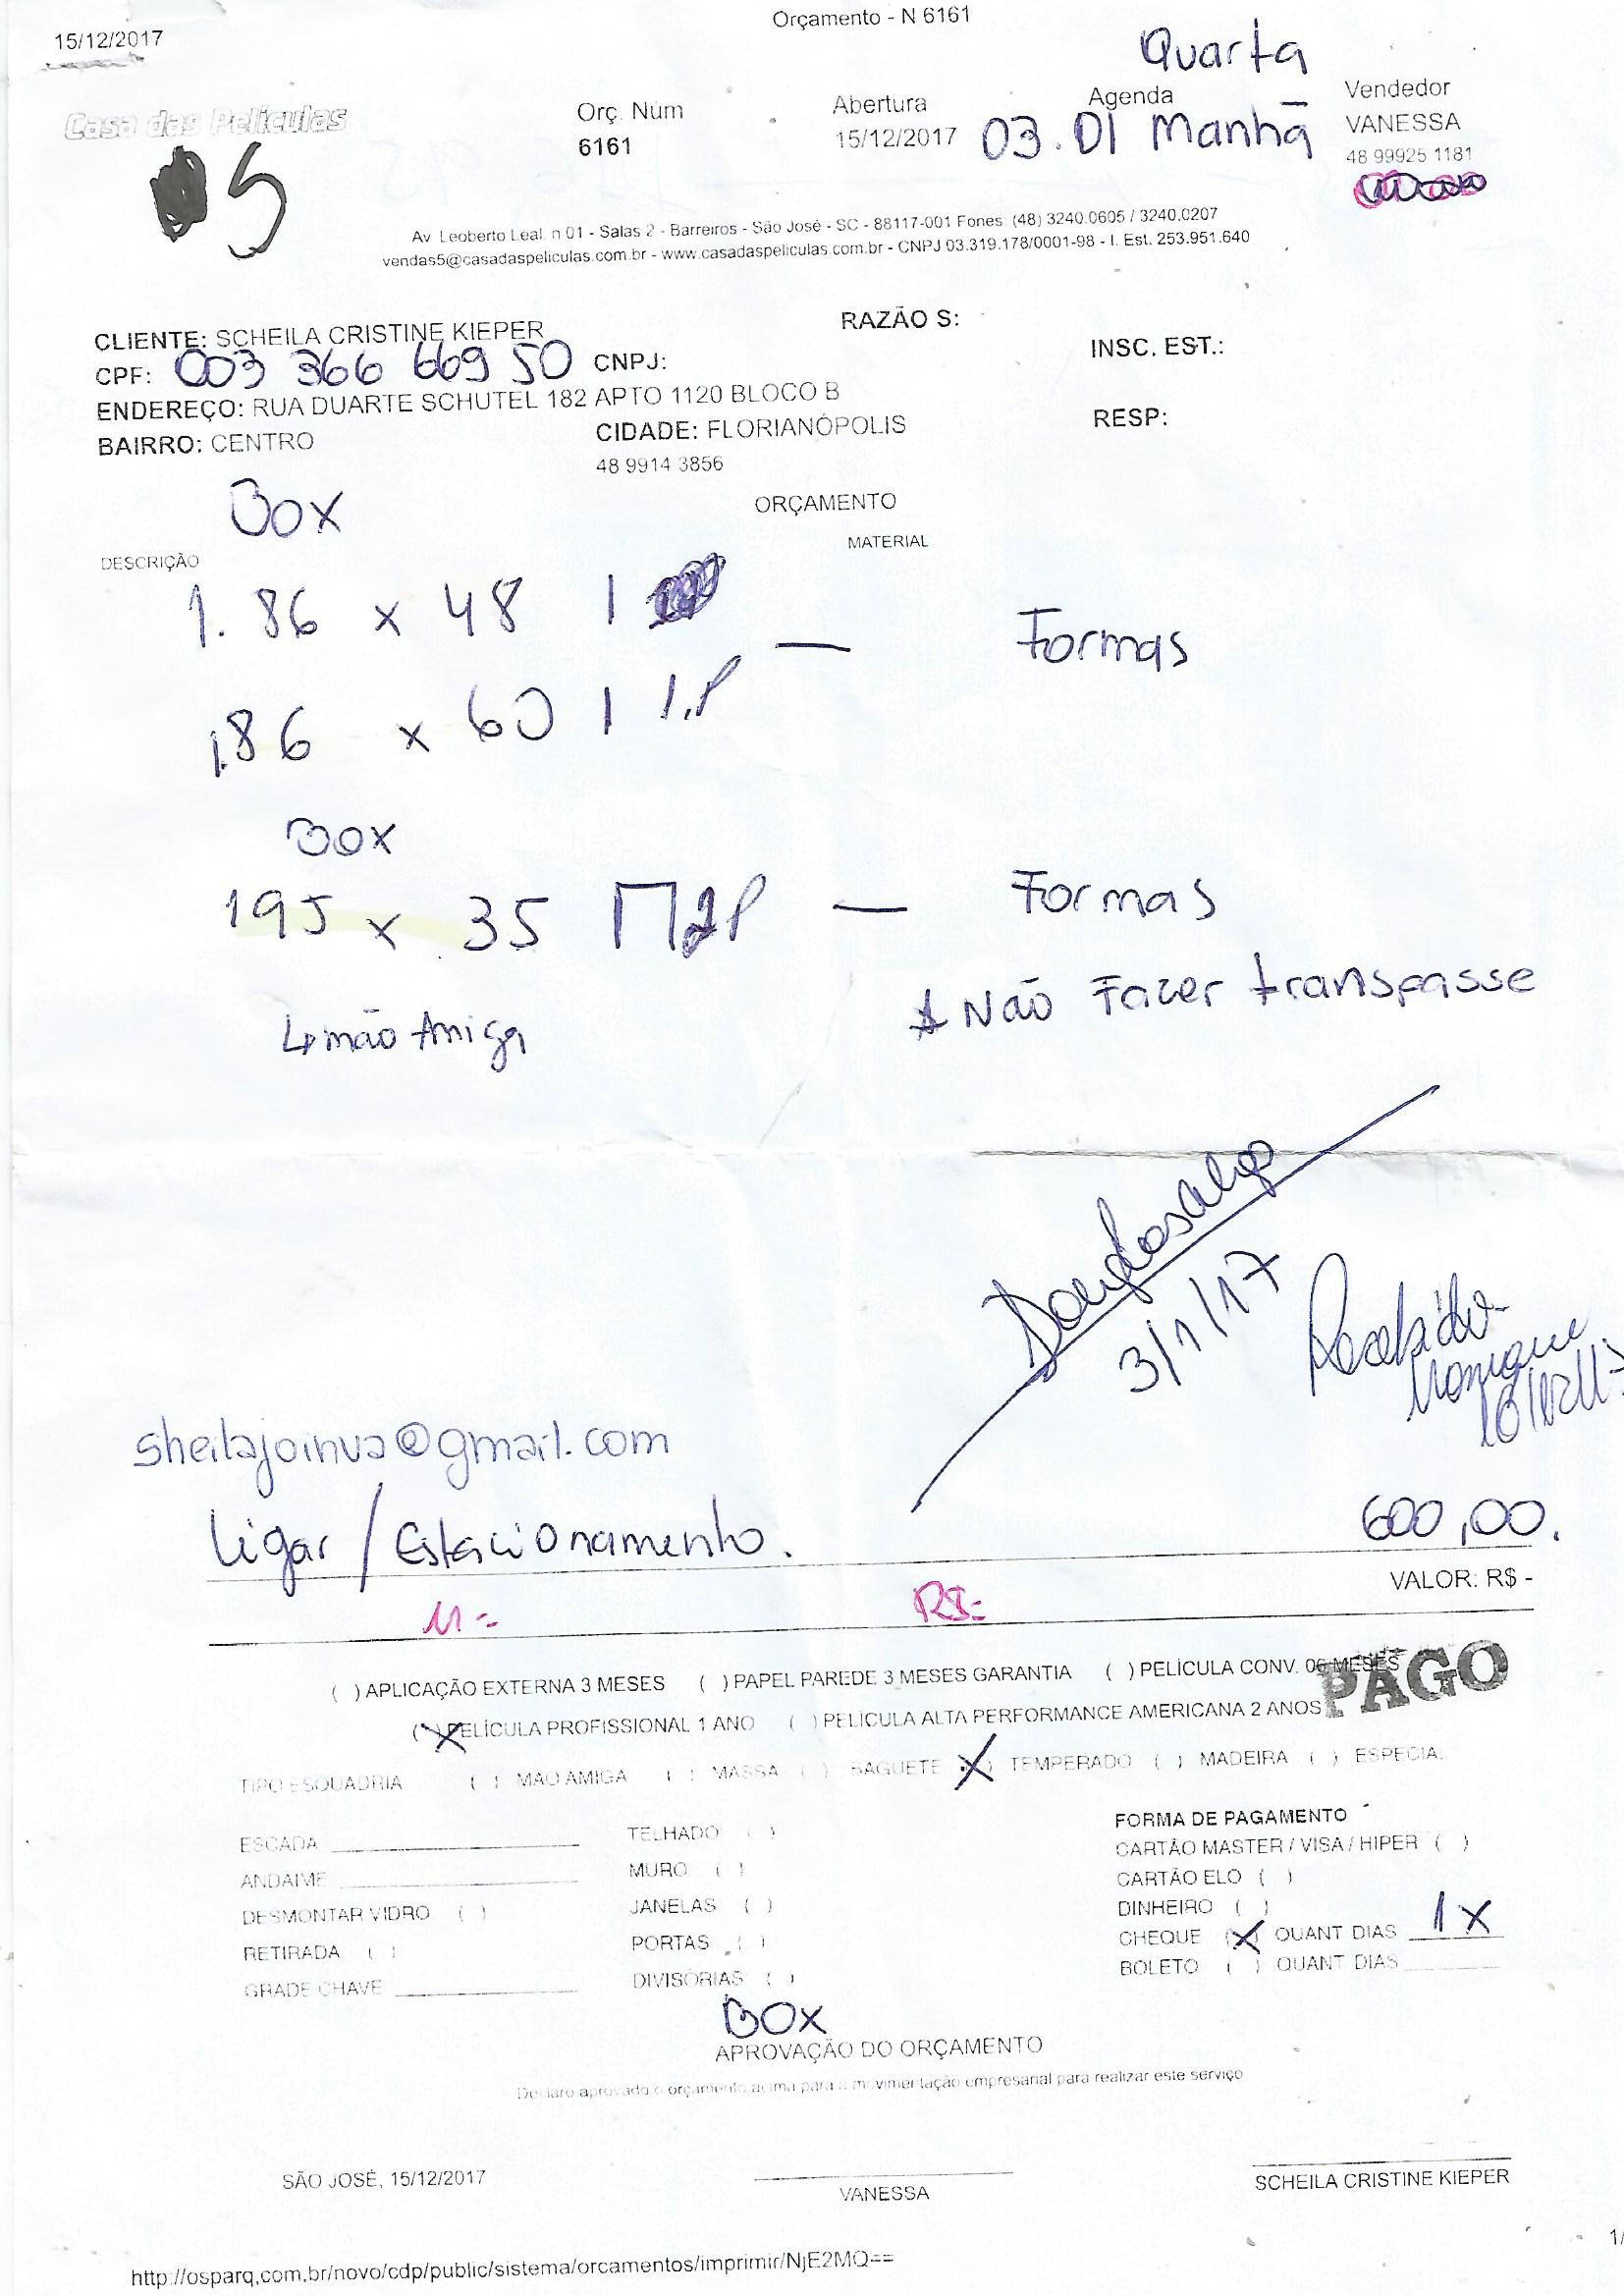 Orçamento - N 6161
15/12/2017
Quarta
Casa das Películas
Orç. Núm
6161
Abertura
15/12/2017
Agenda
03.01 Manhã
Vendedor
VANESSA
48 99925 1181
5
Av. Leoberto Leal, n 01 - Salas 2 - Barreiros - São José - SC - 88117-001 Fones: (48) 3240.0605 / 3240.0207
vendas5@casadaspeliculas.com.br - www.casadaspeliculas.com.br - CNPJ 03.319.178/0001-98 - I. Est. 253.951.640
CLIENTE: SCHEILA CRISTINE KIEPER
RAZÃO S:
CPF: 003 366 669 50 CNPJ:
INSC. EST.:
ENDEREÇO: RUA DUARTE SCHUTEL 182 APTO 1120 BLOCO B
BAIRRO: CENTRO
CIDADE: FLORIANÓPOLIS
RESP:
48 9914 3856
BOX
ORÇAMENTO
DESCRIÇÃO
MATERIAL
1.86 x 48 1 — Formas
1.86 x 60 1 1.P
BOX
195 x 35 2P — Formas
* Não Fazer transpasse
mão Amiga
3/1/17
Recebido
sheilajoinva@gmail.com
Ligar / Estacionamento.
600,00.
VALOR: R$ -
M = R$=
( ) APLICAÇÃO EXTERNA 3 MESES ( ) PAPEL PAREDE 3 MESES GARANTIA ( ) PELÍCULA CONV. 06 MESES
PAGO
(X) PELÍCULA PROFISSIONAL 1 ANO ( ) PELÍCULA ALTA PERFORMANCE AMERICANA 2 ANOS
TIPO ESQUADRIA ( ) MAO AMIGA ( ) MASSA ( ) BAGUETE (X) TEMPERADO ( ) MADEIRA ( ) ESPECIAL
ESCADA
TELHADO ( )
FORMA DE PAGAMENTO
CARTÃO MASTER / VISA / HIPER ( )
ANDAIME
MURO ( )
CARTÃO ELO ( )
DESMONTAR VIDRO ( )
JANELAS ( )
DINHEIRO ( )
RETIRADA ( )
PORTAS ( )
CHEQUE (X) QUANT DIAS 1x
GRADE CHAVE
DIVISÓRIAS ( )
BOLETO ( ) QUANT DIAS
BOX
APROVAÇÃO DO ORÇAMENTO
Declaro aprovado o orçamento acima para a movimentação empresarial para realizar este serviço
SÃO JOSÉ, 15/12/2017
VANESSA
SCHEILA CRISTINE KIEPER
http://osparq.com.br/novo/cdp/public/sistema/orcamentos/imprimir/NjE2MQ==
1/